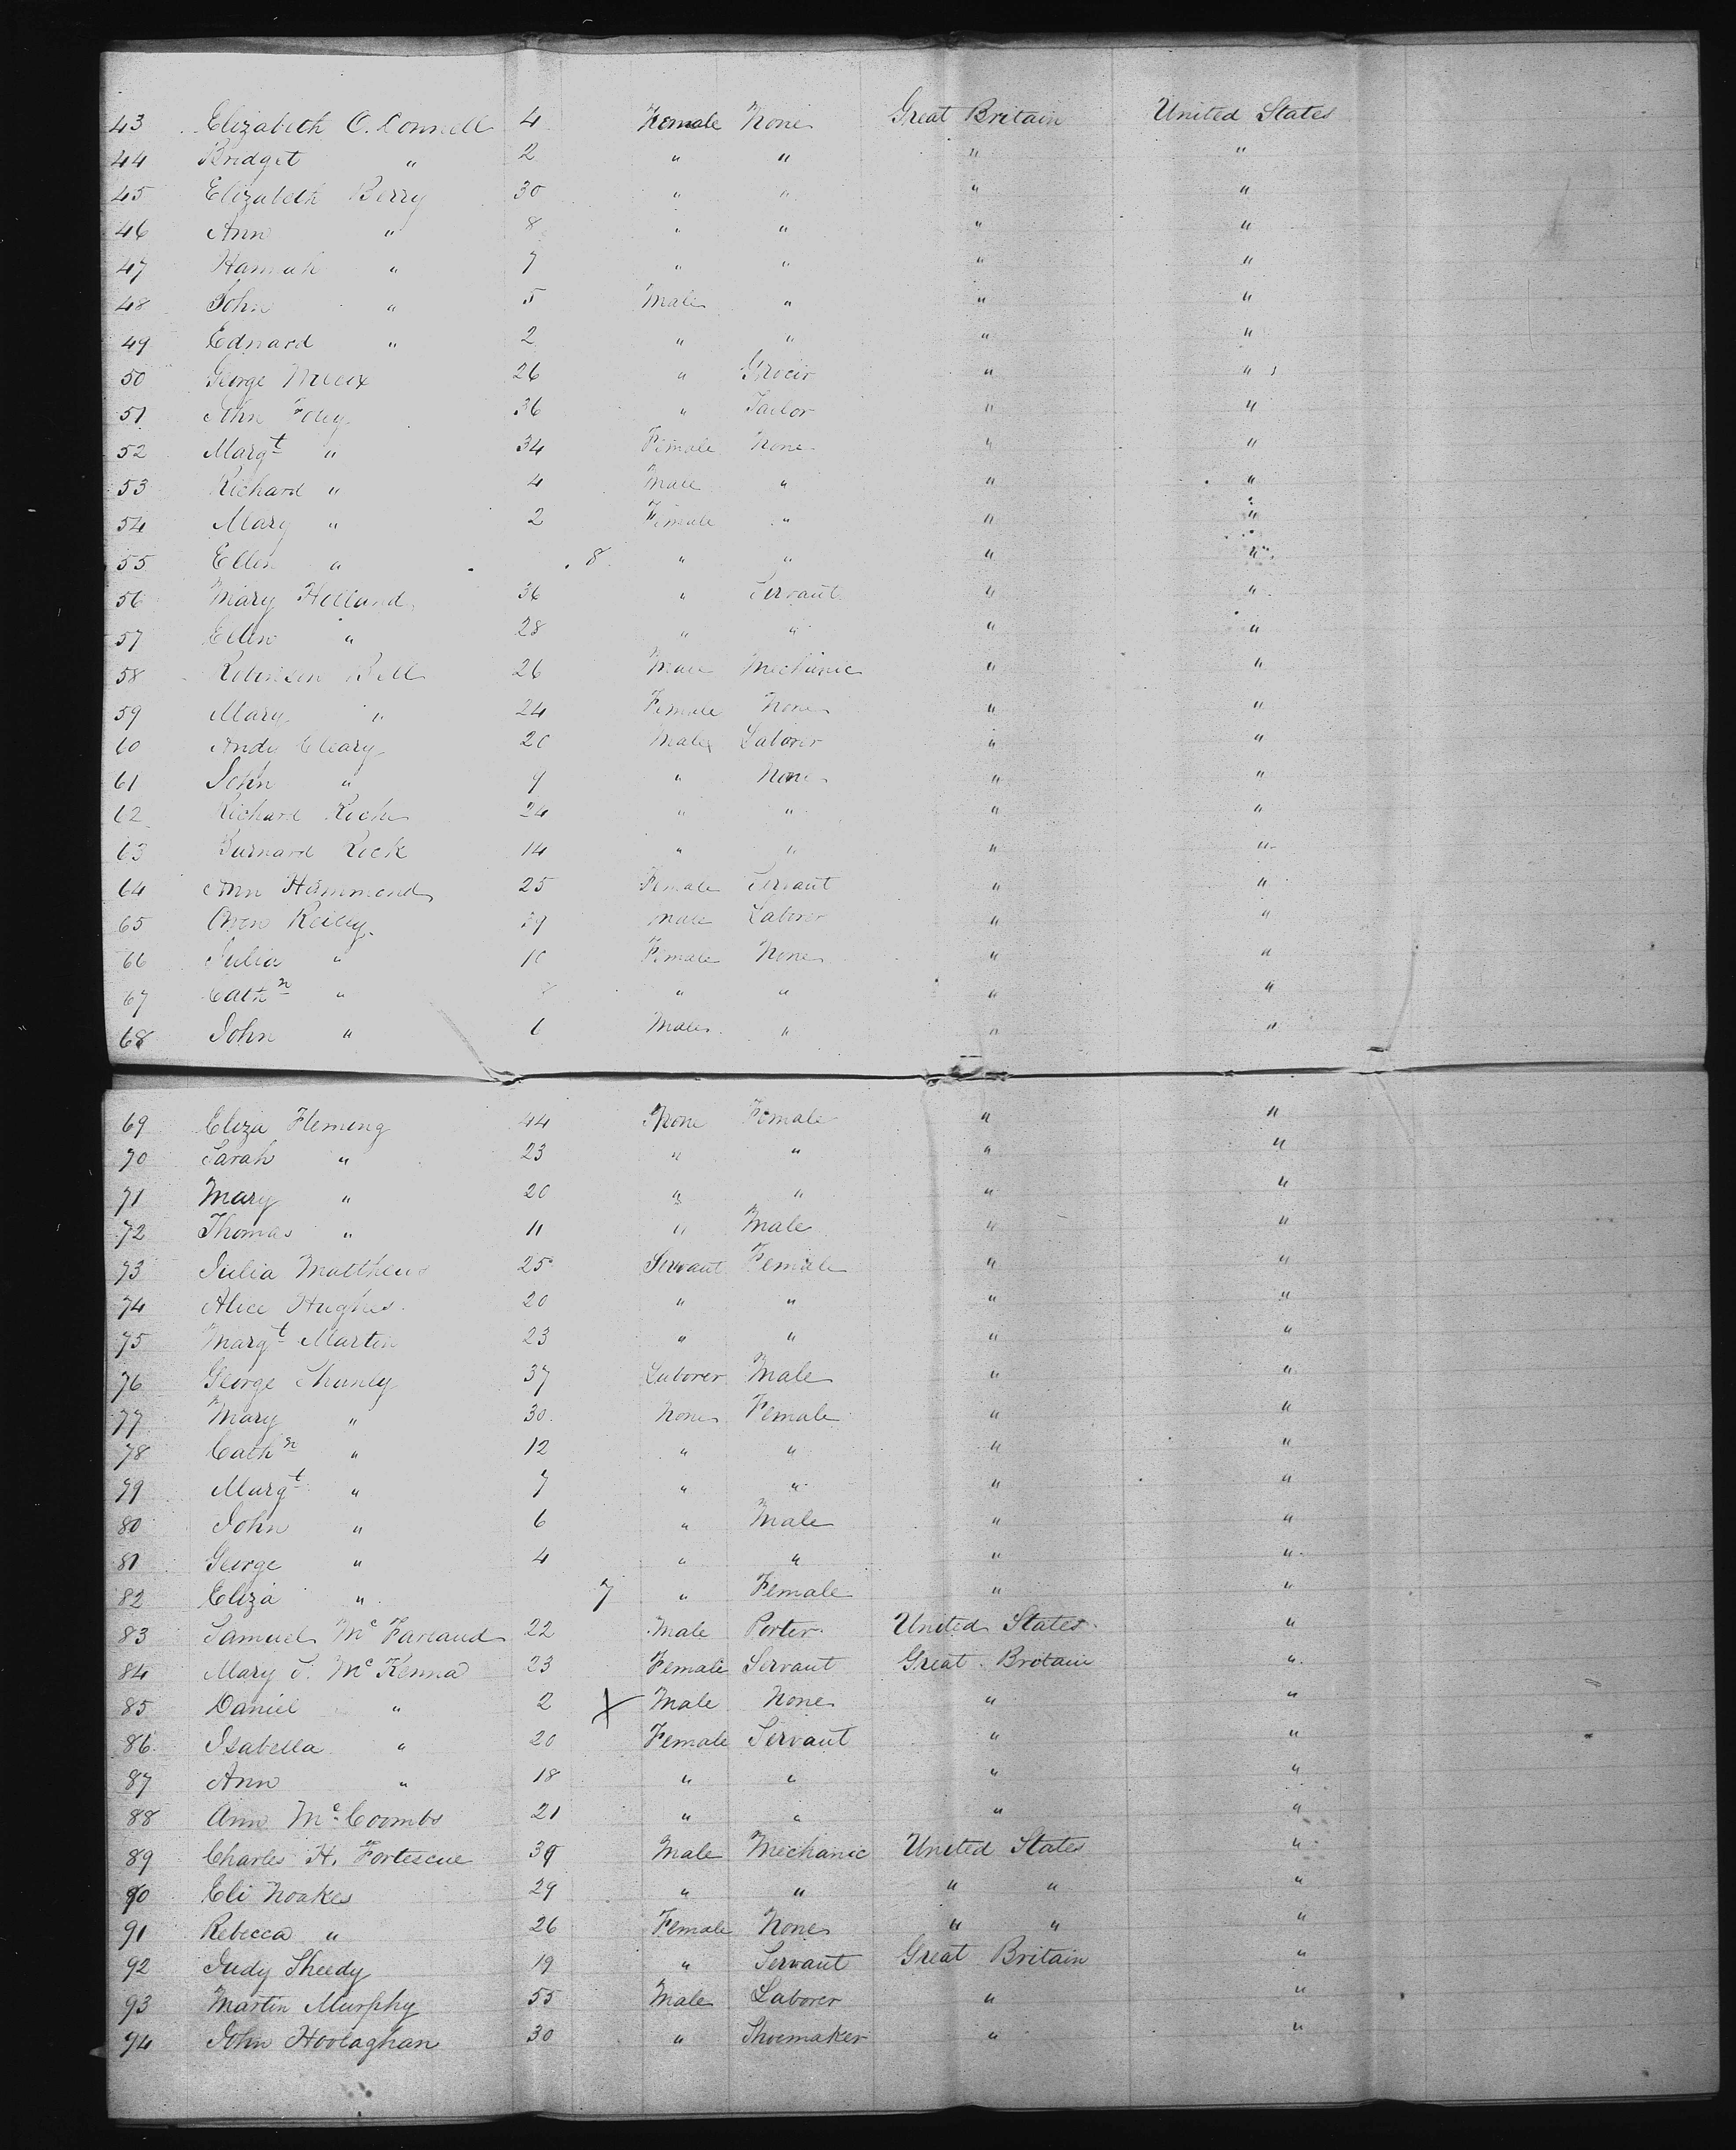 43 Elizabeth O. Connell 4 Female None Great Britain United States
44 Bridget " 2 " " " "
45 Elizabeth Berry 30 " " " "
46 Ann " 8 " " " "
47 Hannah " 7 " " " "
48 John " 5 Male " " "
49 Edward " 2 " " " "
50 George 26 " Grocer " "
51 John Foley 36 " Tailor " "
52 Margt " 34 Female None " "
53 Richard " 4 Male " " "
54 Mary " 2 Female " " "
55 Ellen " 8 " " " "
56 Mary Holland 36 " Servant " "
57 Ellen " 28 " " " "
58 Robinson Bell 26 Male Mechanic " "
59 Mary " 24 Female None " "
60 Andy Cleary 20 Male Laborer " "
61 John " 9 " None " "
62 Richard Roche 24 " " " "
63 Burnard Rock 14 " " " "
64 Ann Hammond 25 Female Servant " "
65 Owen Reiley 39 Male Laborer " "
66 Julia " 10 Female None " "
67 Cathn " 8 " " " "
68 John " 6 Male " " "
69 Eliza Fleming 44 None Female " "
70 Sarah " 23 " " " "
71 Mary " 20 " " " "
72 Thomas " 11 " Male " "
73 Julia Matthews 25 Servant Female " "
74 Alice Hughes 20 " " " "
75 Margt Martin 23 " " " "
76 George Shanly 37 Laborer Male " "
77 Mary " 30 None Female " "
78 Cathn " 12 " " " "
79 Margt " 7 " " " "
80 John " 6 " Male " "
81 George " 4 " " " "
82 Eliza " 7 " Female " "
83 Samuel Mc Farland 22 Male Porter United States "
84 Mary S. Mc Kenna 23 Female Servant Great Britain "
85 Daniel " 2 X Male None " "
86 Isabella " 20 Female Servant " "
87 Ann " 18 " " " "
88 Ann Mc Coombs 21 " " " "
89 Charles H. Fortescue 39 Male Mechanic United States "
90 Eli Noakes 29 " " " " "
91 Rebecca " 26 Female None " " "
92 Judy Sheedy 19 " Servant Great Britain "
93 Martin Murphy 55 Male Laborer " "
94 John Hoolaghan 30 " Shoemaker " "